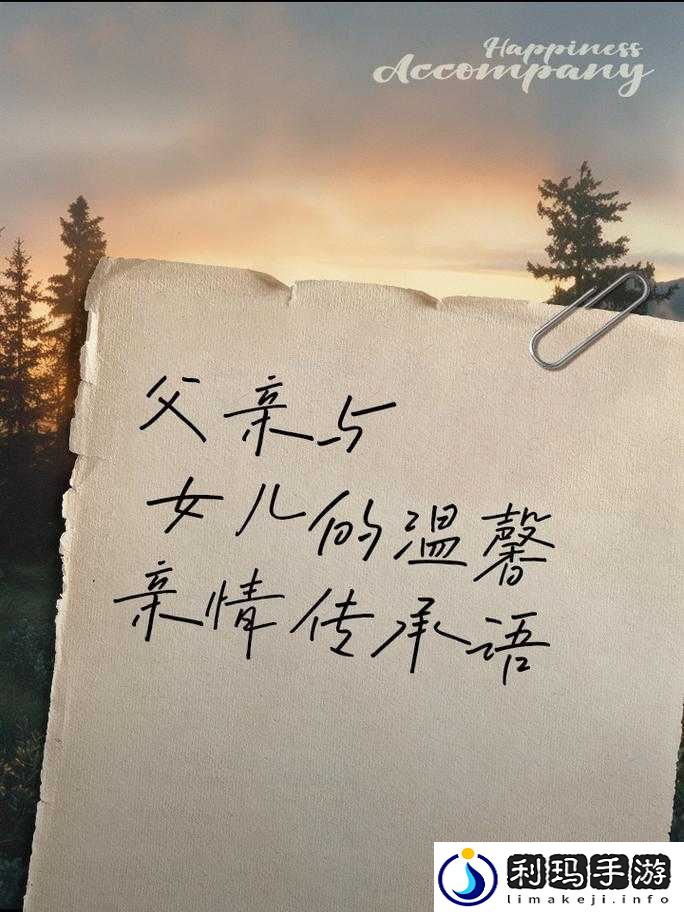 Happiness
Accompany
父亲与
女儿的温馨
亲情传承语
利玛手游
limakeji.info